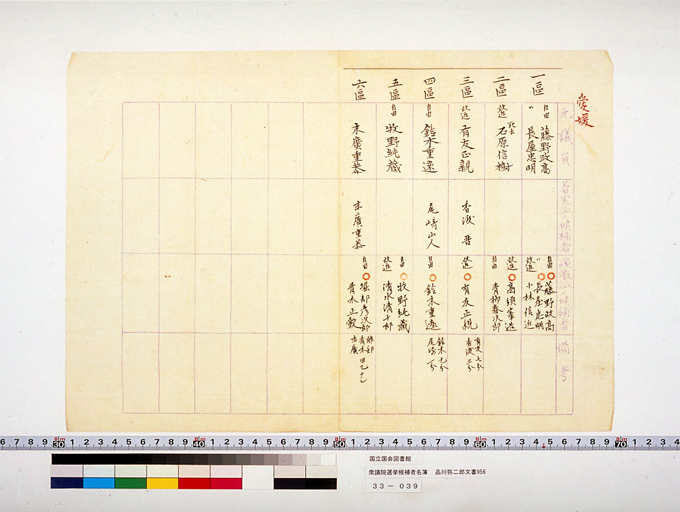 愛媛
元議員
候補者
候補者
備考
一區
自由 藤野政高
〃 長屋忠明
二區
改進 死去 石原信樹
三區
改進 有友正親
四區
自由 鈴木重遠
五區
自由 牧野純蔵
六區
末廣重恭
香渡晋
尾崎山人
末廣重恭
自由 藤野政高
〃 長屋忠明
改進 小林信近
改進 高須峯造
自由 青柳春次郎
改進 有友正親
自由 鈴木重遠
自由 牧野純蔵
改進 清水清十郎
自由 堀部彦次郎
青木正毅
有友 七分
香渡 三分
鈴木 九分
尾崎 一分
堀部
青木
末廣
国立国会図書館
衆議院選挙候補者名簿 品川弥二郎文書956
33-039